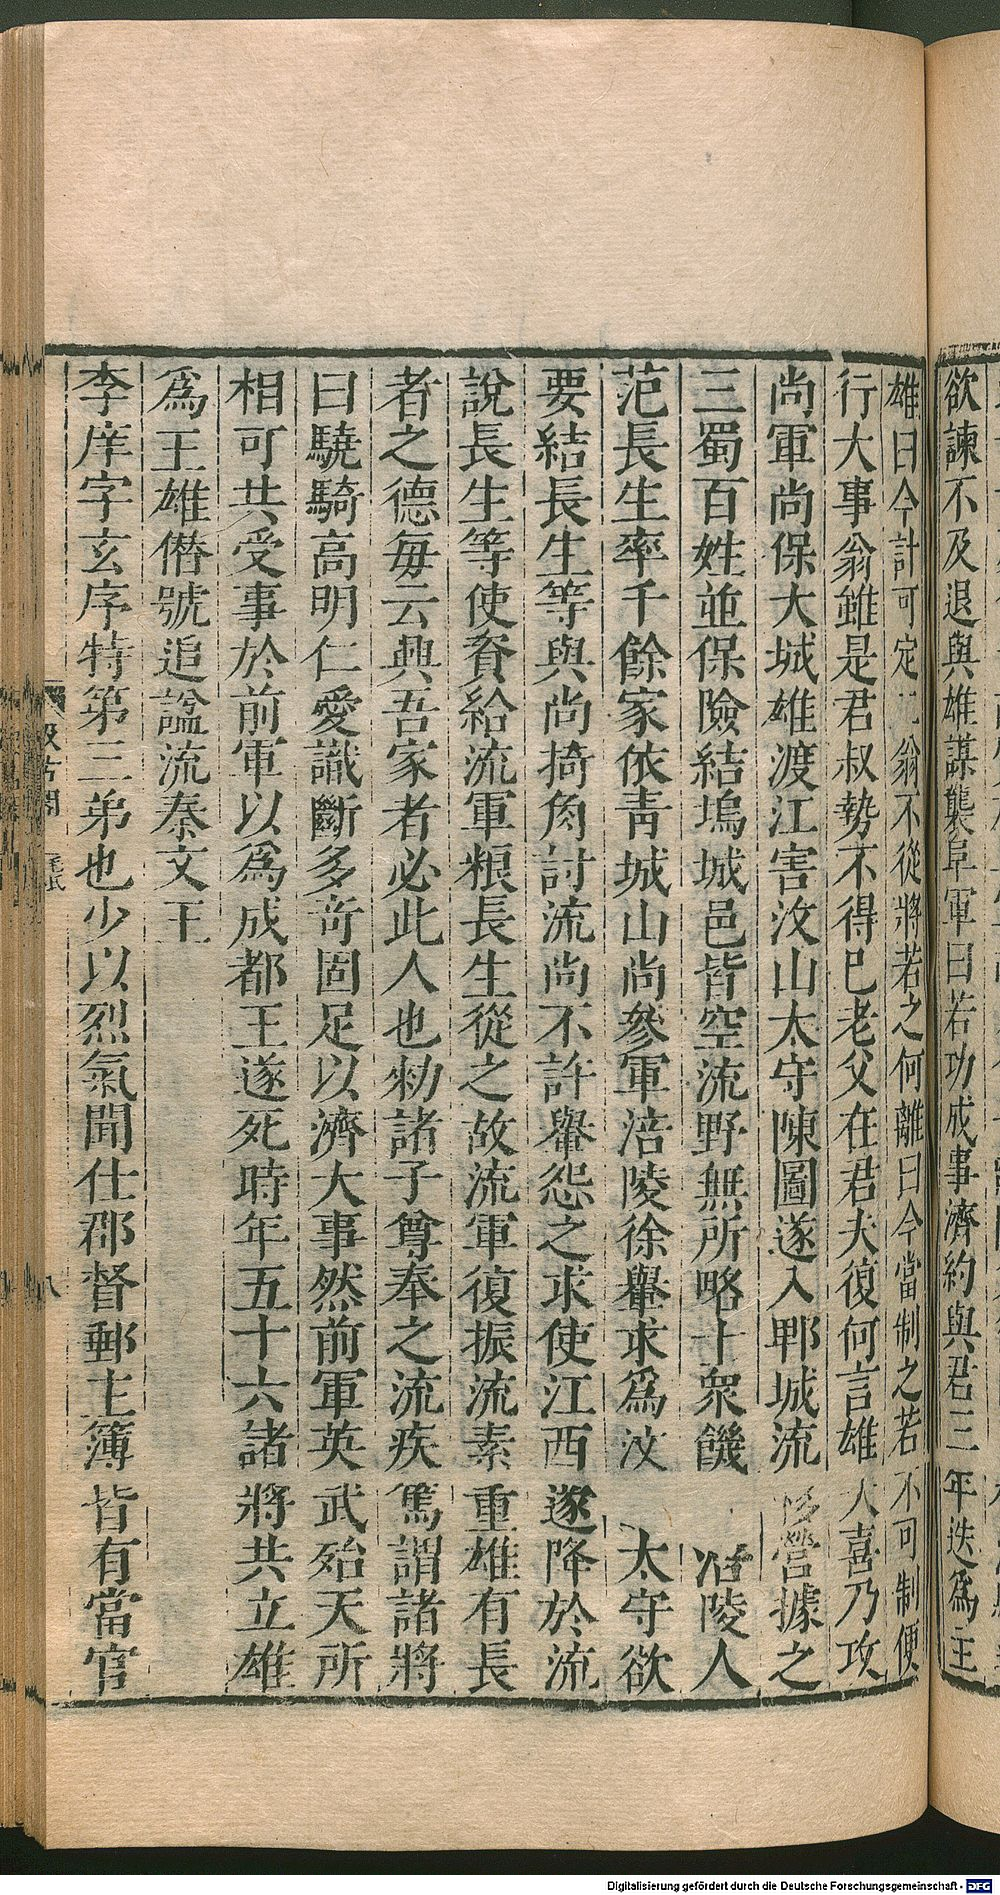 欲諫不及退與雄謀襲阜軍曰若功成事濟約與君三年迭爲主
雄曰今計可定翁不從將若之何離曰今當制之若不可制便
行大事翁雖是君叔勢不得已老父在君夫復何言雄大喜乃攻
尚軍尚保大城雄渡江害汶山太守陳圖遂入郫城流移營據之
三蜀百姓並保險結塢城邑皆空流野無所略士衆饑涪陵人
范長生率千餘家依青城山尚參軍涪陵徐轝求爲汶太守欲
要結長生等與尚掎角討流尚不許轝怨之求使江西遂降於流
說長生等使資給流軍粮長生從之故流軍復振流素重雄有長
者之德每云興吾家者必此人也勑諸子尊奉之流疾篤謂諸將
曰驍騎高明仁愛識斷多奇固足以濟大事然前軍英武殆天所
相可共受事於前軍以爲成都王遂死時年五十六諸將共立雄
爲王雄僭號追謚流秦文王
李庠字玄序特第三弟也少以烈氣聞仕郡督郵主簿皆有當官
汲古閣
毛氏
八
Digitalisierung gefördert durch die Deutsche Forschungsgemeinschaft - DFG